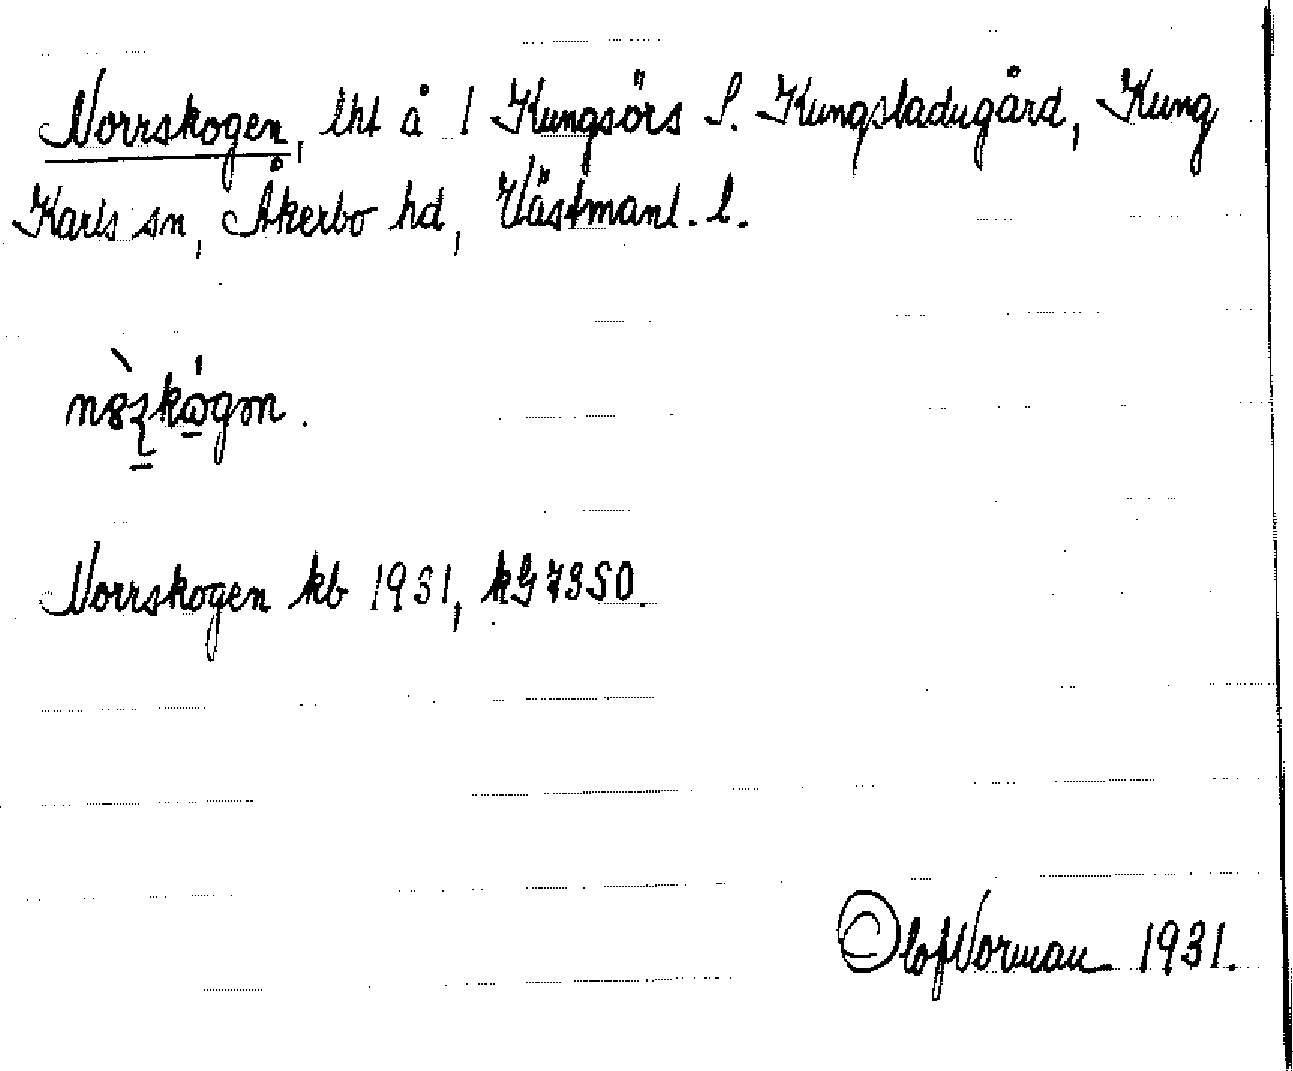 Norrskogen, lht å 1 Kungsörs S. Kungsladugård, Kung
Karls sn, Åkerbo hd, Västmanl. l.
Norrskogen kb 1931, kG 7350.
Olof Norman 1931.